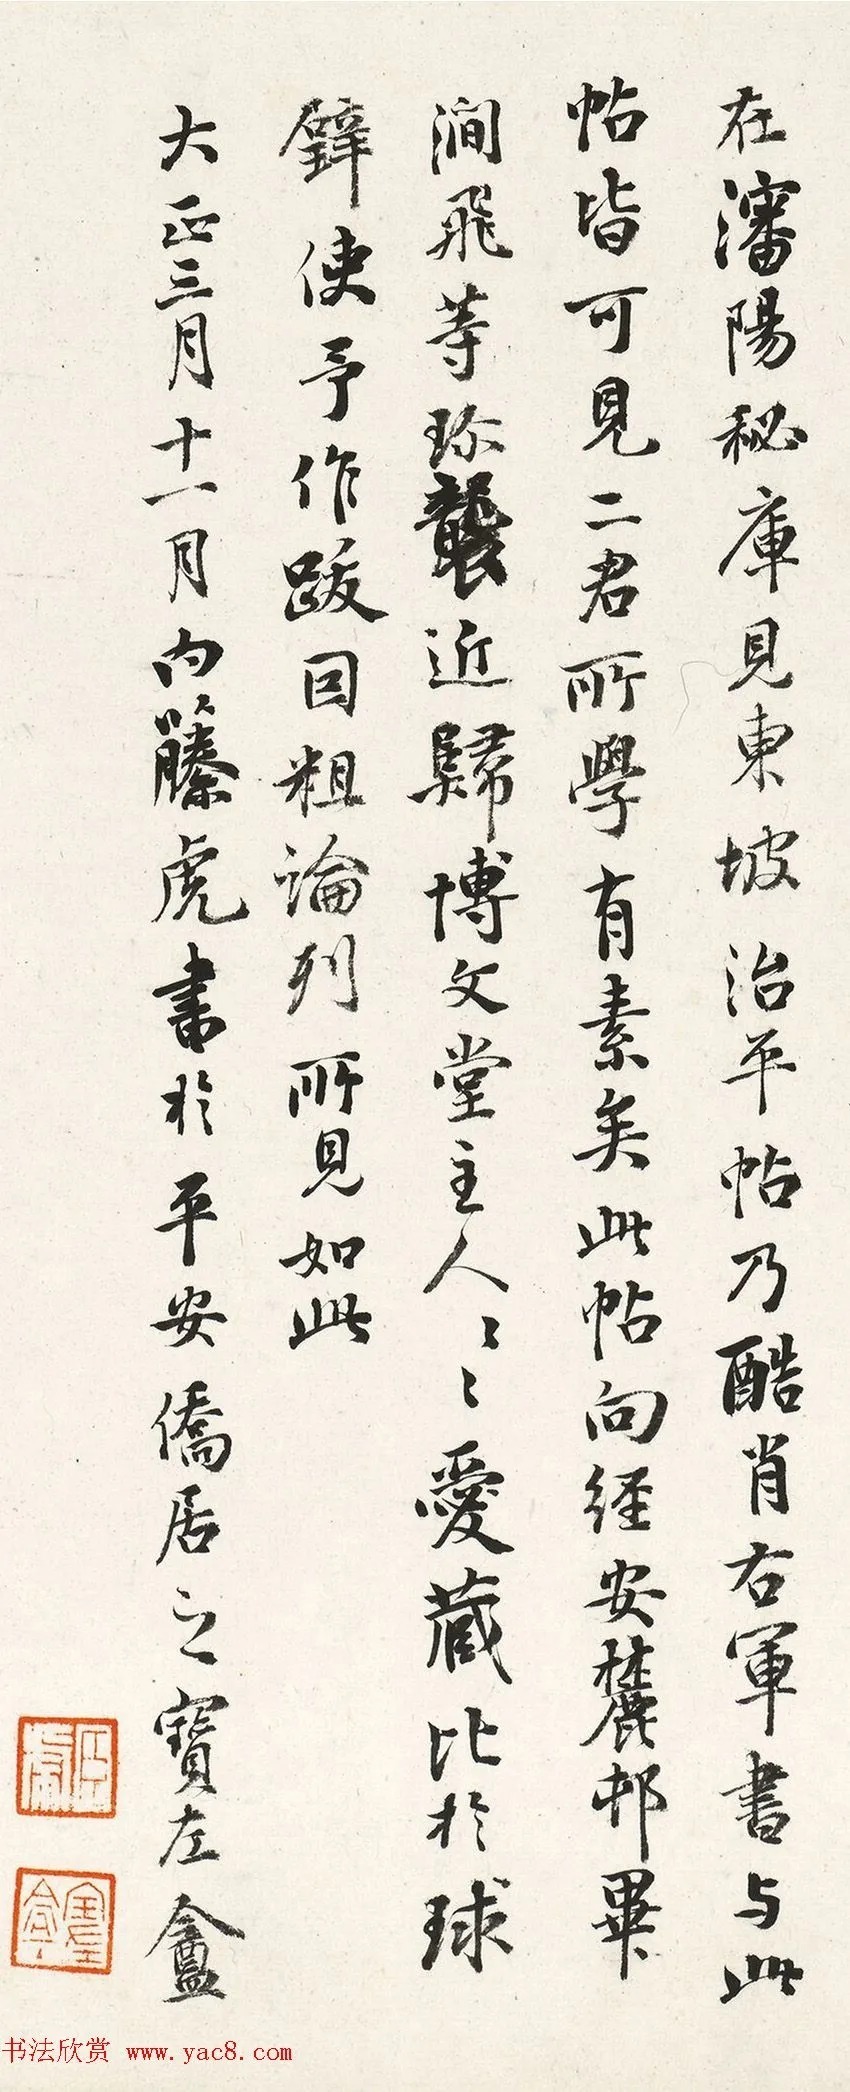 在瀋陽秘庫見東坡治平帖乃酷肖右軍書与此
帖皆可見二君所學有素矣此帖向經安麓邨畢
澗飛等珎襲近歸博文堂主人〻〻愛藏比於球
鐸使予作跋因粗論列所見如此
大正三月十一月内藤虎書於平安僑居之寶左盦
臣虎
寶左盦
书法欣赏 www.yac8.com